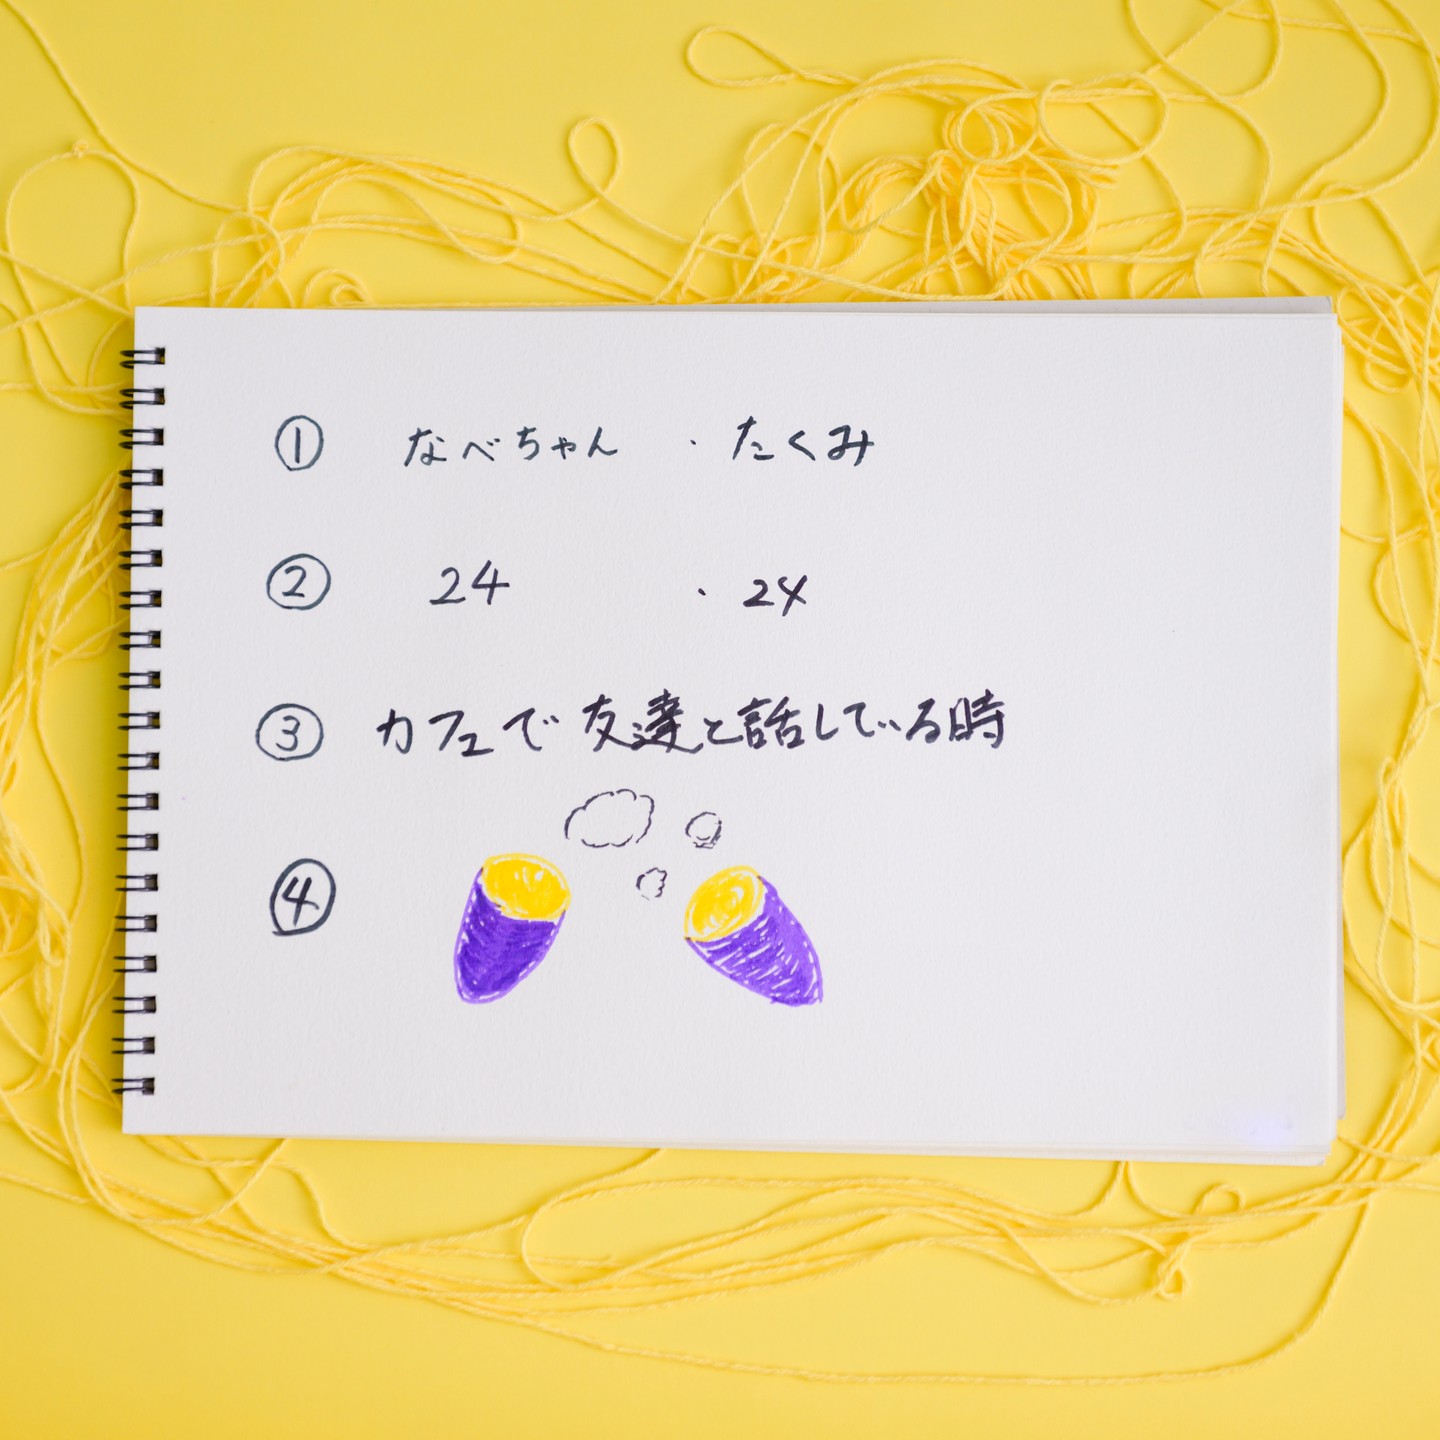 ① なべちゃん ・ たくみ
② 24 ・ 24
③ カフェで友達と話している時
④